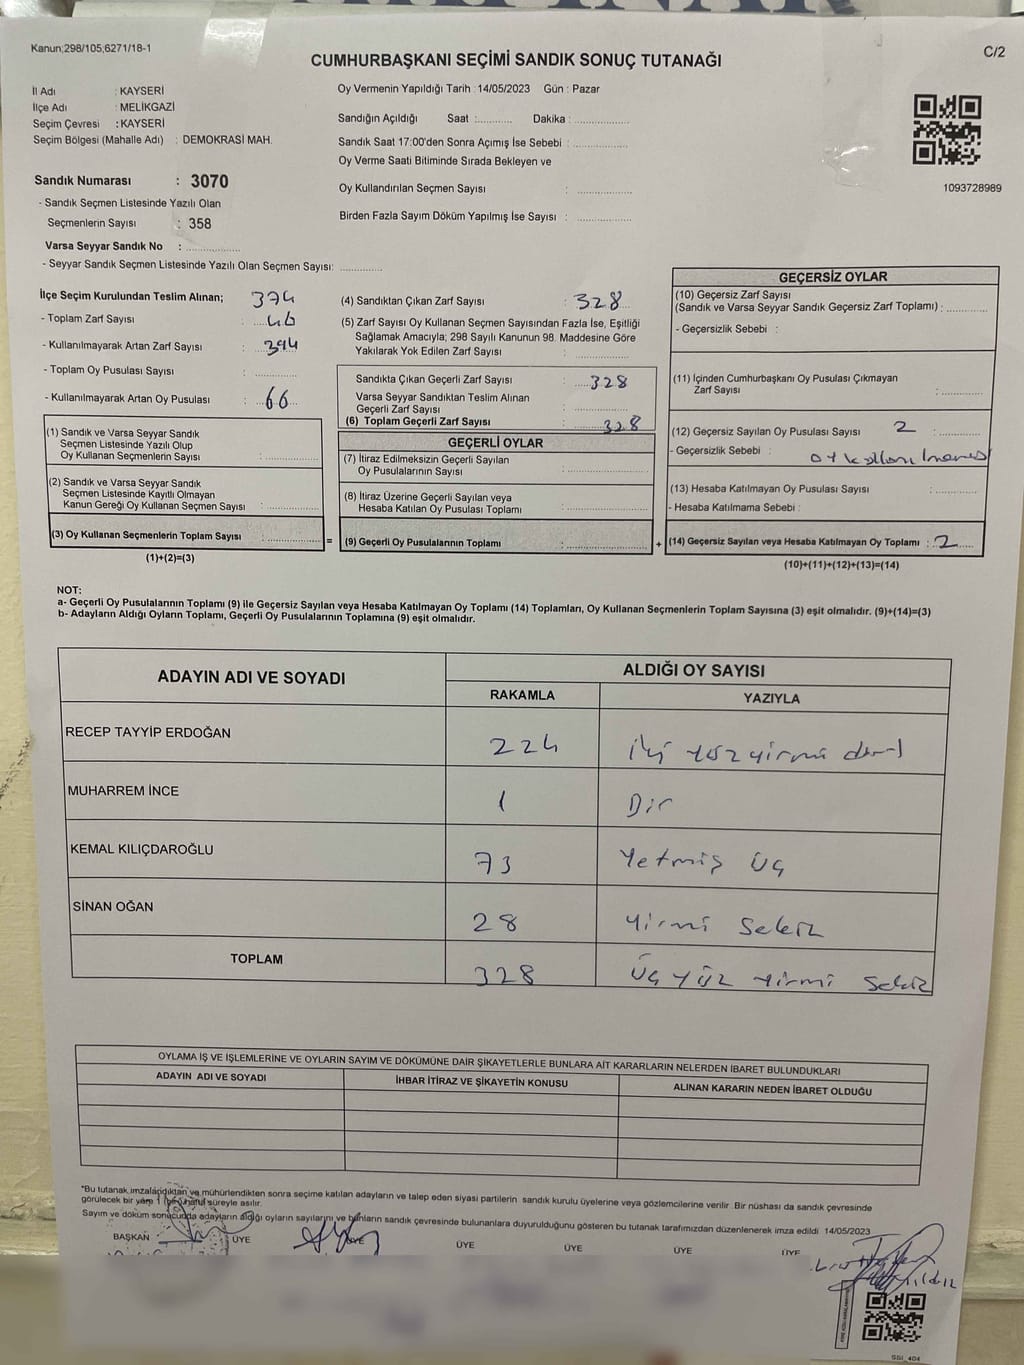 Kanun;298/105;6271/18-1
CUMHURBAŞKANI SEÇİMİ SANDIK SONUÇ TUTANAĞI
C/2
İl Adı : KAYSERİ
İlçe Adı : MELİKGAZİ
Seçim Çevresi : KAYSERİ
Seçim Bölgesi (Mahalle Adı) : DEMOKRASİ MAH.
Oy Vermenin Yapıldığı Tarih : 14/05/2023 Gün : Pazar
Sandığın Açıldığı Saat :........... Dakika :..................
Sandık Saat 17:00'den Sonra Açımış İse Sebebi :..................
Oy Verme Saati Bitiminde Sırada Bekleyen ve
Oy Kullandırılan Seçmen Sayısı :..................
Birden Fazla Sayım Döküm Yapılmış İse Sayısı :..................
1093728989
Sandık Numarası : 3070
- Sandık Seçmen Listesinde Yazılı Olan
Seçmenlerin Sayısı : 358
Varsa Seyyar Sandık No :..................
- Seyyar Sandık Seçmen Listesinde Yazılı Olan Seçmen Sayısı: .............
İlçe Seçim Kurulundan Teslim Alınan;
- Toplam Zarf Sayısı :
- Kullanılmayarak Artan Zarf Sayısı :
- Toplam Oy Pusulası Sayısı :
- Kullanılmayarak Artan Oy Pusulası : 66
(1) Sandık ve Varsa Seyyar Sandık
Seçmen Listesinde Yazılı Olup
Oy Kullanan Seçmenlerin Sayısı :..................
(2) Sandık ve Varsa Seyyar Sandık
Seçmen Listesinde Kayıtlı Olmayan
Kanun Gereği Oy Kullanan Seçmen Sayısı :..................
(3) Oy Kullanan Seçmenlerin Toplam Sayısı :..................
(1)+(2)=(3)
(4) Sandıktan Çıkan Zarf Sayısı : 328
(5) Zarf Sayısı Oy Kullanan Seçmen Sayısından Fazla İse, Eşitliği
Sağlamak Amacıyla; 298 Sayılı Kanunun 98. Maddesine Göre
Yakılarak Yok Edilen Zarf Sayısı :..................
Sandıkta Çıkan Geçerli Zarf Sayısı : 328
Varsa Seyyar Sandıktan Teslim Alınan
Geçerli Zarf Sayısı :..................
(6) Toplam Geçerli Zarf Sayısı : 328
GEÇERLİ OYLAR
(7) İtiraz Edilmeksizin Geçerli Sayılan
Oy Pusulalarının Sayısı :..................
(8) İtiraz Üzerine Geçerli Sayılan veya
Hesaba Katılan Oy Pusulası Toplamı :..................
= (9) Geçerli Oy Pusulalarının Toplamı :..................
GEÇERSİZ OYLAR
(10) Geçersiz Zarf Sayısı
(Sandık ve Varsa Seyyar Sandık Geçersiz Zarf Toplamı) :.............
- Geçersizlik Sebebi :
(11) İçinden Cumhurbaşkanı Oy Pusulası Çıkmayan
Zarf Sayısı :..................
(12) Geçersiz Sayılan Oy Pusulası Sayısı 2 :.............
- Geçersizlik Sebebi :
(13) Hesaba Katılmayan Oy Pusulası Sayısı :.............
- Hesaba Katılmama Sebebi :
+ (14) Geçersiz Sayılan veya Hesaba Katılmayan Oy Toplamı : 2
(10)+(11)+(12)+(13)=(14)
NOT:
a- Geçerli Oy Pusulalarının Toplamı (9) ile Geçersiz Sayılan veya Hesaba Katılmayan Oy Toplamı (14) Toplamları, Oy Kullanan Seçmenlerin Toplam Sayısına (3) eşit olmalıdır. (9)+(14)=(3)
b- Adayların Aldığı Oyların Toplamı, Geçerli Oy Pusulalarının Toplamına (9) eşit olmalıdır.
ADAYIN ADI VE SOYADI
ALDIĞI OY SAYISI
RAKAMLA YAZIYLA
RECEP TAYYİP ERDOĞAN 224 iki yüz yirmi dört
MUHARREM İNCE 1 Bir
KEMAL KILIÇDAROĞLU 73 Yetmiş üç
SİNAN OĞAN 28 Yirmi Sekiz
TOPLAM 328 Üç yüz yirmi sekiz
OYLAMA İŞ VE İŞLEMLERİNE VE OYLARIN SAYIM VE DÖKÜMÜNE DAİR ŞİKAYETLERLE BUNLARA AİT KARARLARIN NELERDEN İBARET BULUNDUKLARI
ADAYIN ADI VE SOYADI İHBAR İTİRAZ VE ŞİKAYETİN KONUSU ALINAN KARARIN NEDEN İBARET OLDUĞU
*Bu tutanak imzalandıktan ve mühürlendikten sonra seçime katılan adayların ve talep eden siyasi partilerin sandık kurulu üyelerine veya gözlemcilerine verilir. Bir nüshası da sandık çevresinde
görülecek bir yere 1 süreyle asılır.
Sayım ve döküm sonucunda adayların aldığı oyların sayılarını ve bunların sandık çevresinde bulunanlara duyurulduğunu gösteren bu tutanak tarafımızdan düzenlenerek imza edildi 14/05/2023
BAŞKAN ÜYE ÜYE ÜYE ÜYE ÜYE ÜYE